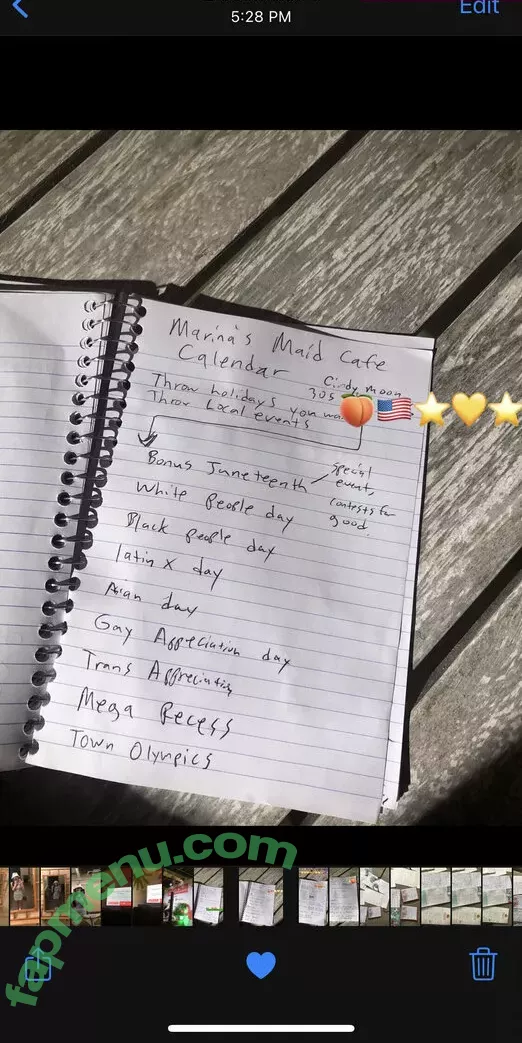 5:28 PM
Edit
Marina's Maid Cafe
Calendar
Cindy Moon
305
Throw holidays you
Throw Local events
Bonus Juneteenth
special
event,
contests for
good.
White people day
Black people day
latin x day
Asian day
Gay Appreciation day
Trans Appreciation
Mega Recess
Town Olympics
fapmenu.com